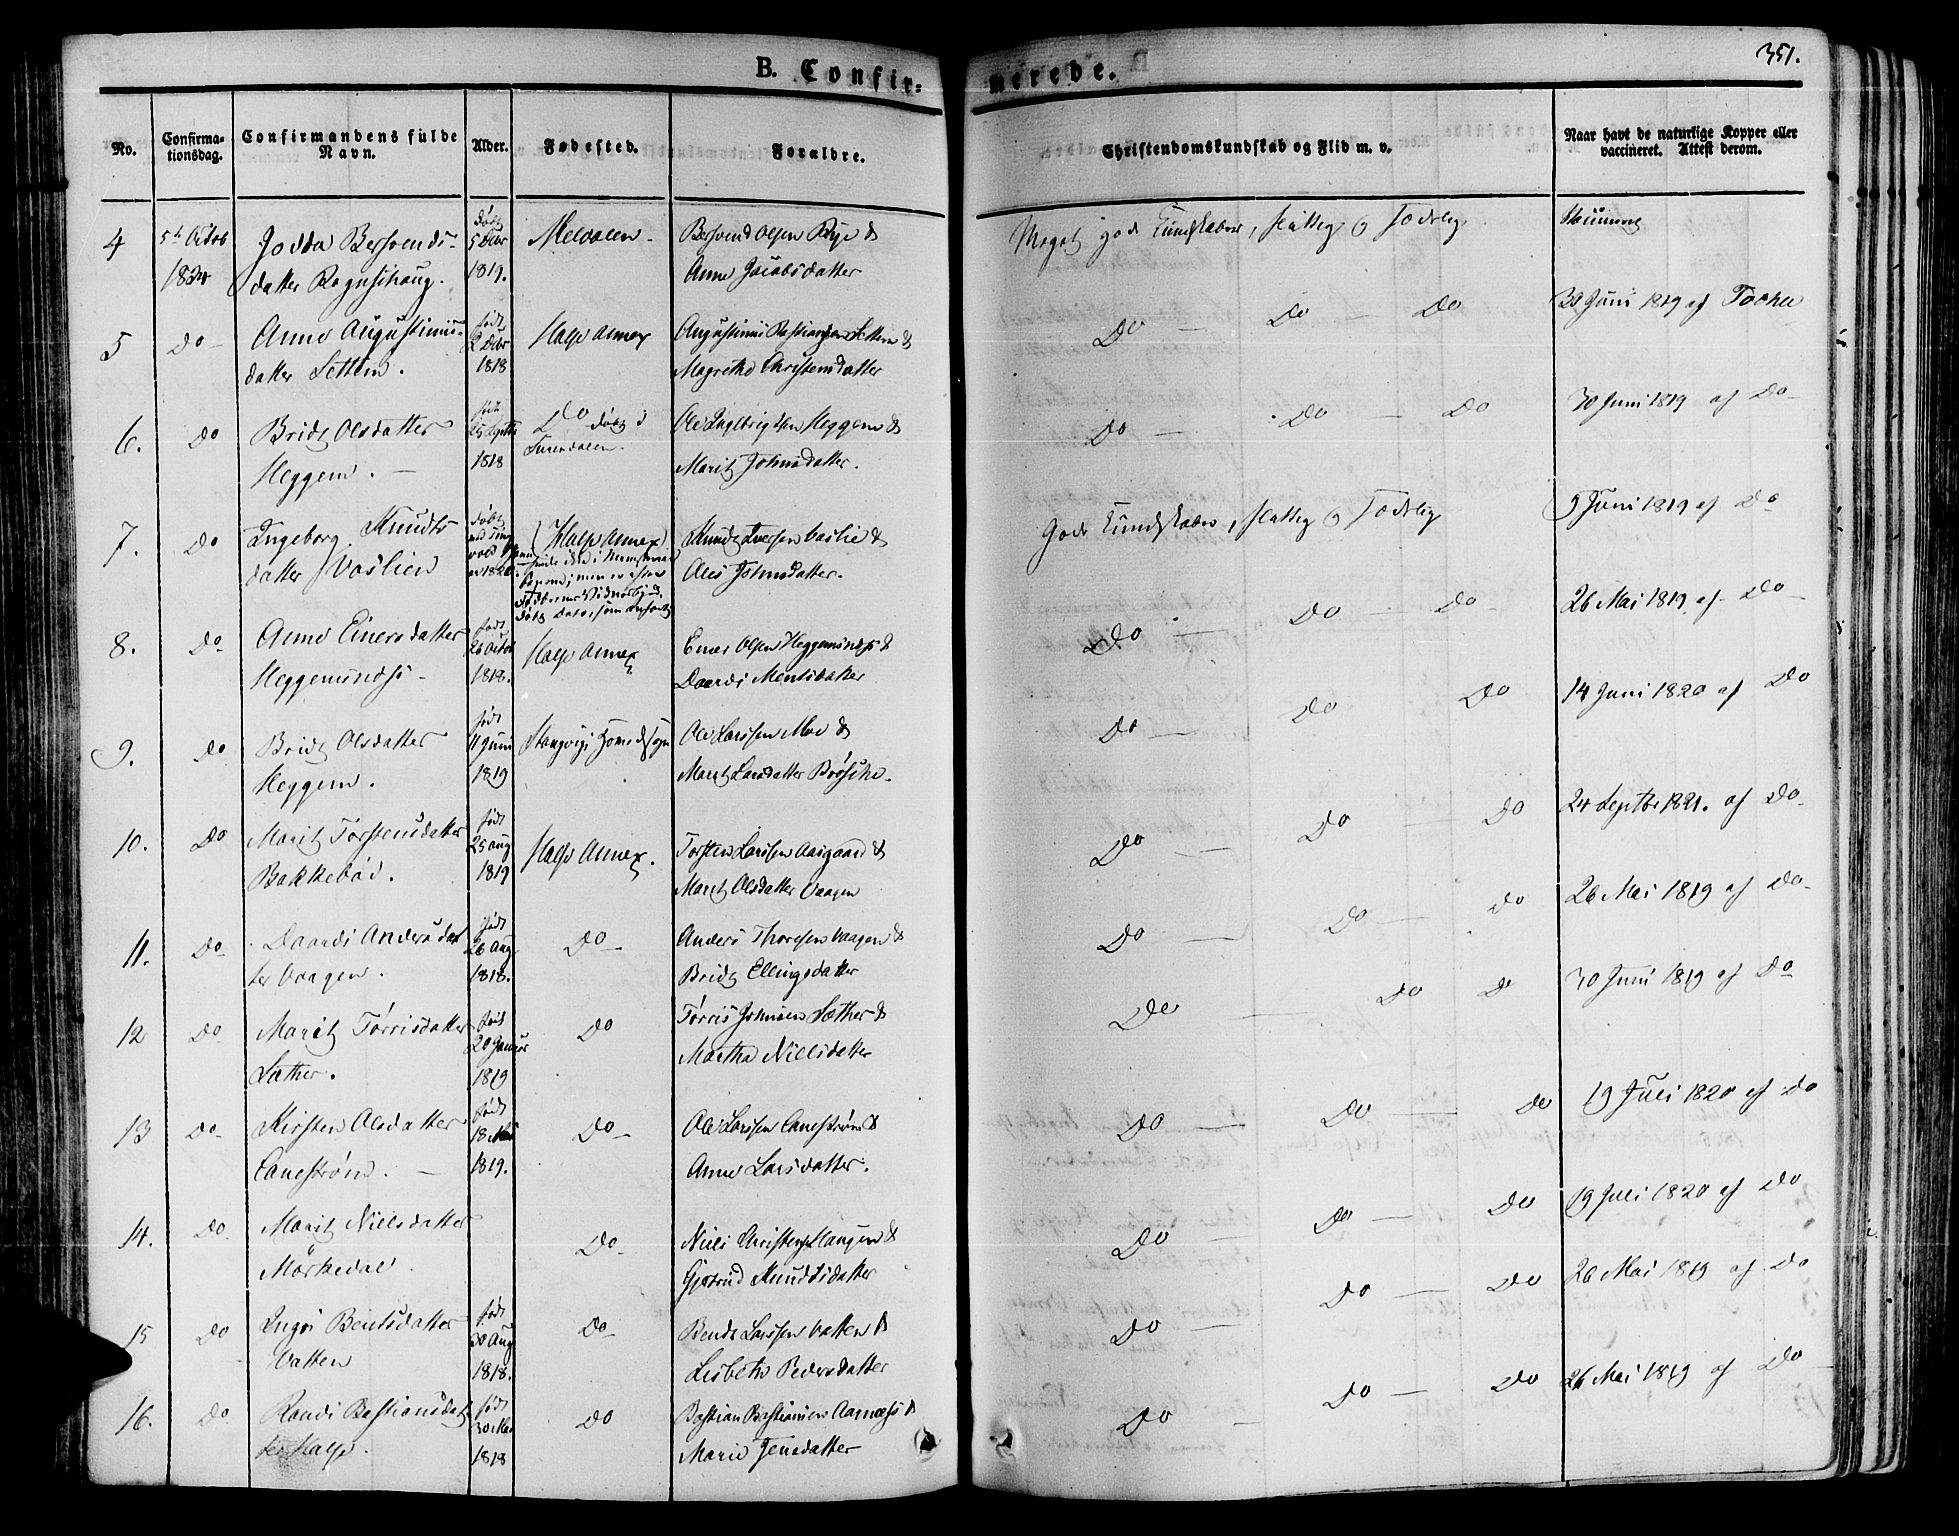 351.
B. Confir= merede.
No.
Confirma-
tionsdag.
Confirmandens fulde
Navn.
Alder.
Fødested.
Forældre.
Christendomskundskab og Flid m. v.
Naar havt de naturlige Kopper eller
vaccineret. Attest derom.
4
5te Octob
1834
datter
døbt
5 Dbr
1819.
Meldalen.
Bersvend Olsen Rye &
Anne Jacobsdatter
Meget gode Kundskaber, flittig og Sædelig
5
Do
Anne Augustinus-
datter Settem.
født
2 Dbr
1818
Halse Annex
Augustinus Bastiansen Settem &
Magrethe Christensdatter
Do — Do — Do
30 Juni 1819 af
6.
Do
Bridt Olsdatter
Heggem. —
født
25 Septbr
1818
Do døbt i
Surendalen.
Ole Ingebrigtsen Heggem &
Marit Johnsdatter.
Do — Do — Do
30 Juni 1819 af Do
7.
Do
Ingeborg Knudts
datter Vaslien
døbt
1820
(Halse Annex)
Knudt Iversen Vaslie &
Ales Johnsdatter.
Gode Kundskaber, flittig og Sædelig
9 Juni 1819 af Do
8.
Do
Anne Einersdatter
Heggemundss
født
26 Octob
1818.
Halse Annex
Einer Olsen Heggemundss &
Daardi Mentsdatter
Do — Do — Do
26 Mai 1819 af Do
9.
Do
Bridt Olsdatter
Heggem.
født
11 Juni
1819
Stangvigs Hovedsogn
Ole Larssen Moe &
Marit Larsdatter
Do — Do Do
14 Juni 1820 af Do
10.
Do
Marit Torstensdatter
Bakkebød.
født
25 Aug
1819
Halse Annex.
Torsten Larssen Aasgaard &
Marit Olsdatter Vaagen
Do — Do — Do
24 Septbr 1821. af Do
11.
Do
Daardi Andersdat
ter Vaagen.
født
26 Aug
1818.
Do
Anders Thoresen Vaagen &
Bridt Ellingsdatter
Do — Do — Do
26 Mai 1819 af Do
12
Do
Marit Tørrisdatter
Sæther.
født
20 Januar
1819
Do
Tørris Johnsen Sæther &
Martha Nielsdatter
Do — Do Do
30 Juni 1819 af Do
13
Do
Kirsten Olsdatter
Canestrøm. —
født
18
1819.
Do
Ole Larssen Canestrøm &
Anne Larsdatter.
Do — Do — Do
19 Juli 1820 af Do
14.
Do
Marit Nielsdatter
Mørkedal
Do
Niels Christens Haugen &
Gjertrud Knudtsdatter
Do — Do — Do
19 Juli 1820 af Do
15
Do
Bentsdatter
Vatten
født
30 Aug
1818.
Do
Bendt Larssen Vatten &
Lisbeth Pedersdatter
Do — Do — Do
26 Mai 1819 af Do
16.
Do
Randi Bastiansdat
ter Halse.
født
30 Mai
1818
Do
Bastian Bastiansen Aarnæss &
Marie Jensdatter
Do — Do — Do
26 Mai 1819 af Do